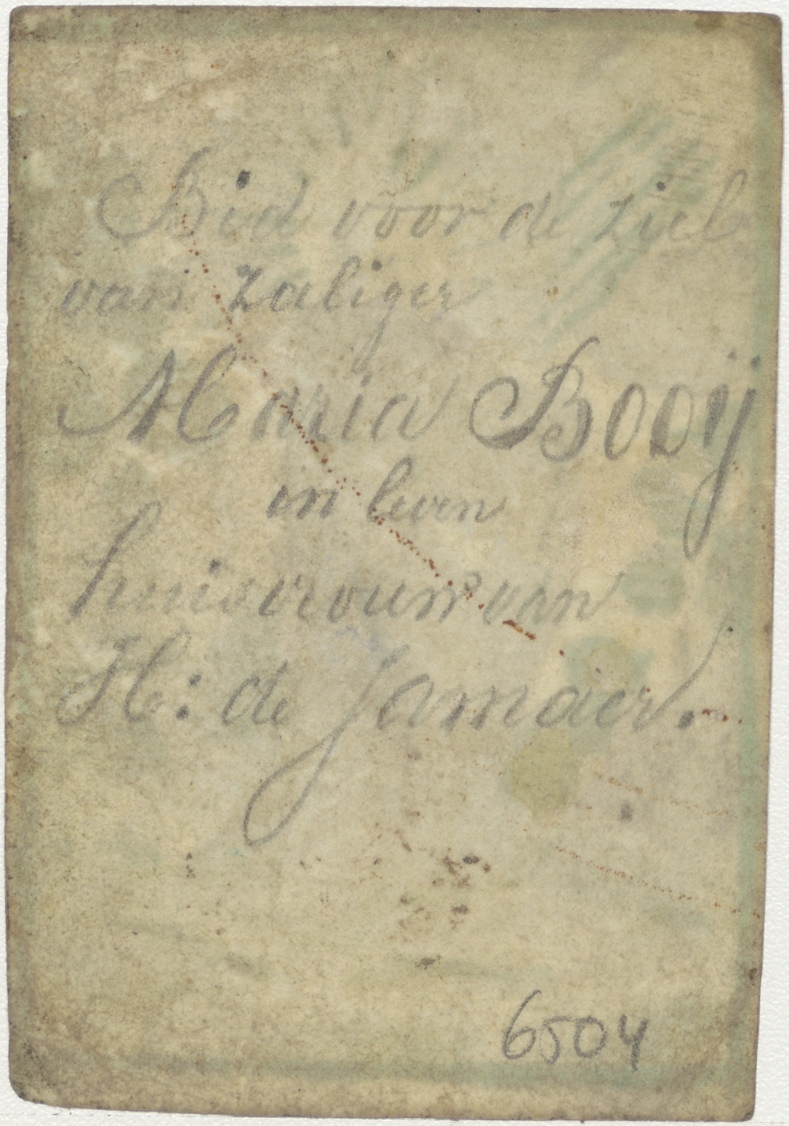 Bid voor de ziel
van zaliger
Maria Booij
in leven
huisvrouw van
H: de Jamaer.
6504